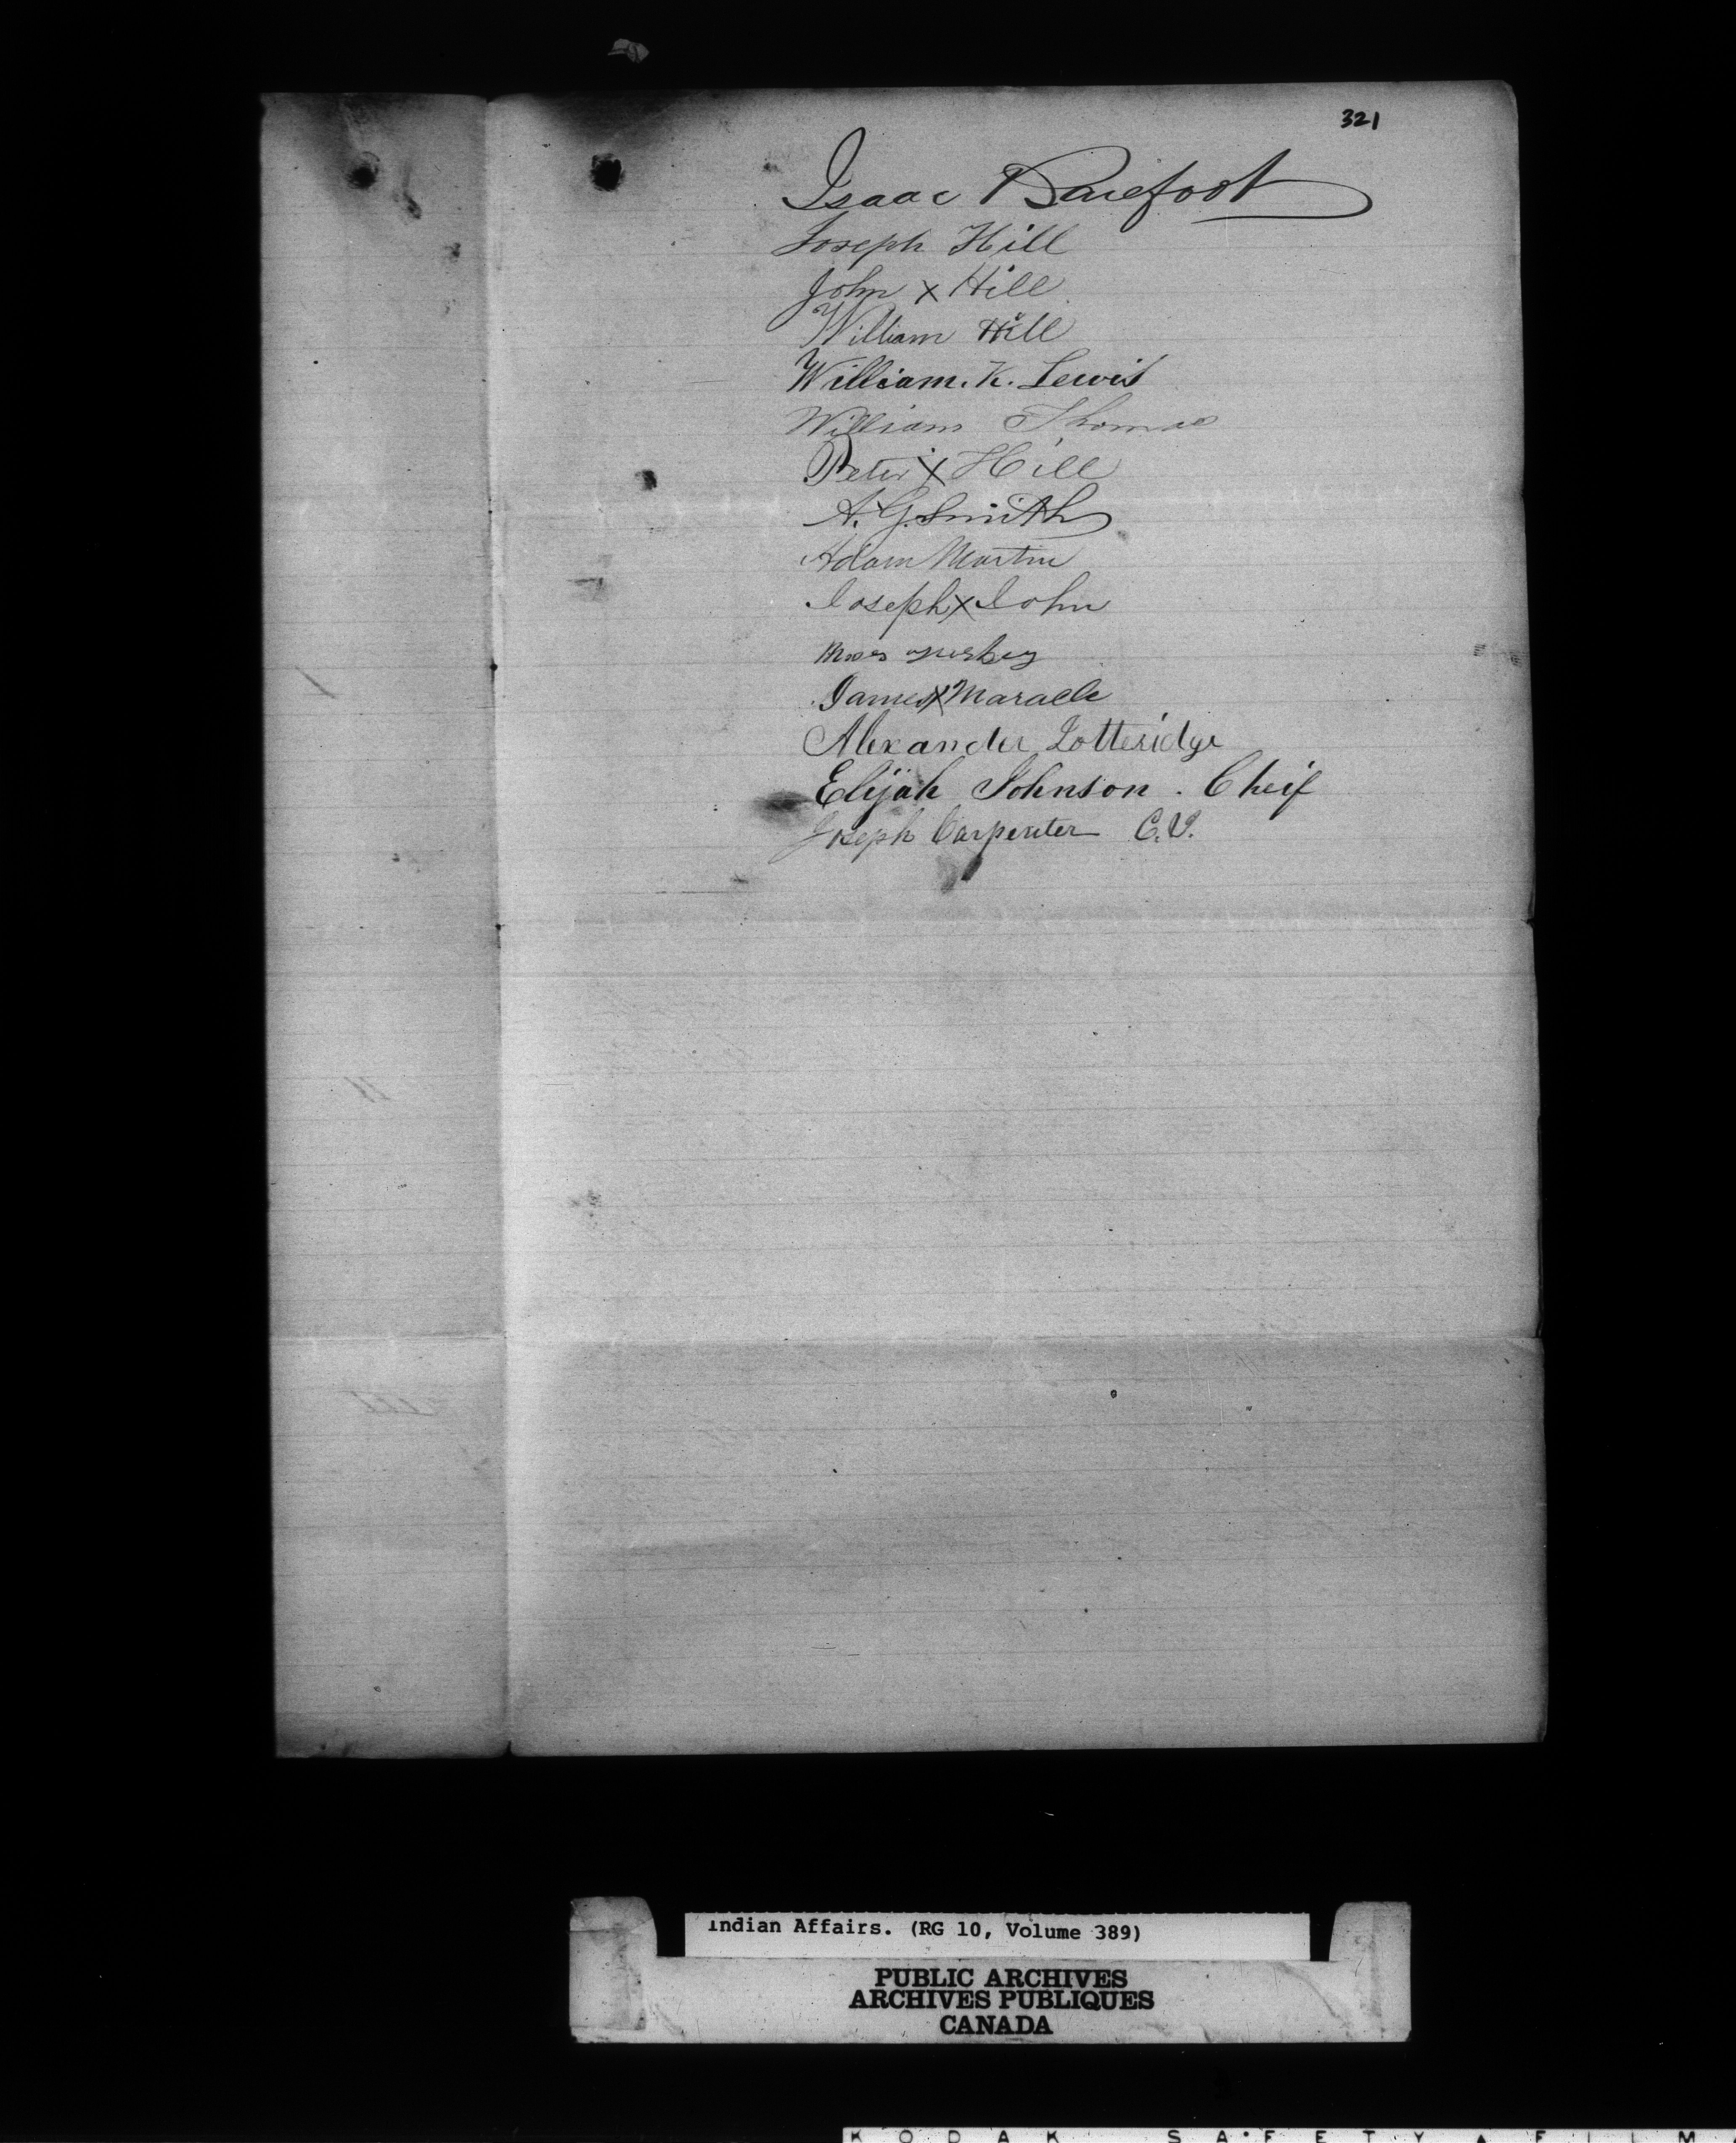 321
Isaac Barefoot
Joseph Hill
John x Hill
William Hill
William. K. Lewis
William Thomas
Peter x Hill
A. G. Smith
Adam Martin
Joseph x John
James x Maracle
Alexander Lotteridge
Elijah Johnson. Cheif
Joseph Carpenter C.
Indian Affairs. (RG 10, Volume 389)
PUBLIC ARCHIVES
ARCHIVES PUBLIQUES
CANADA
KODAK SAFETY FILM